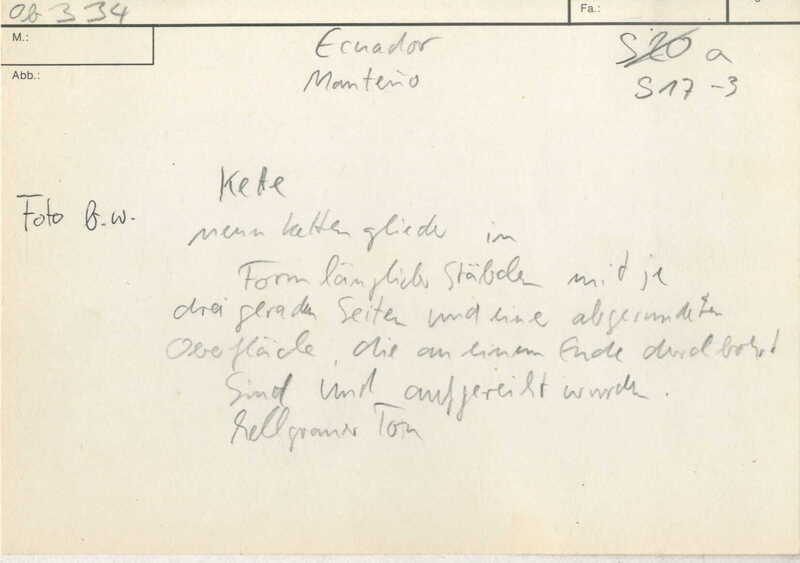 Ob 334
Fa.:
M.:
Abb.:
Ecuador
Manteño
S20 a
S 17 -3
Kette
Foto b.w.
neun Kettenglieder in
Form länglicher Stäbchen mit je
drei geraden Seiten und einer abgerundeten
Oberfläche, die an einem Ende durchbohrt
sind und aufgereiht wurden.
hellgrauer Ton